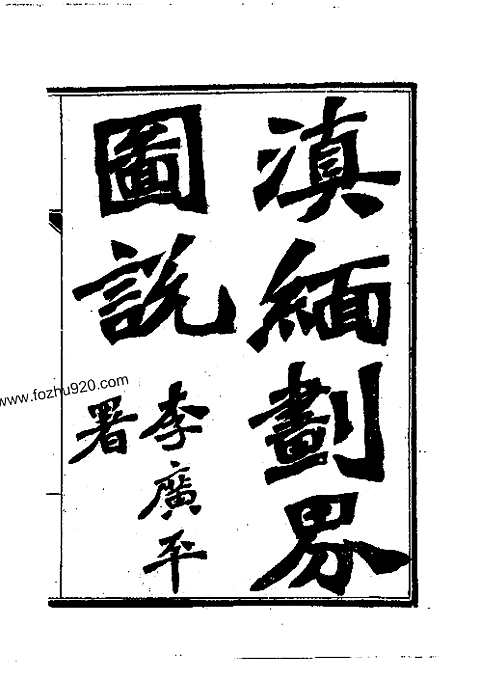 滇緬劃界
圖説
李廣平
署
www.fozhu920.com